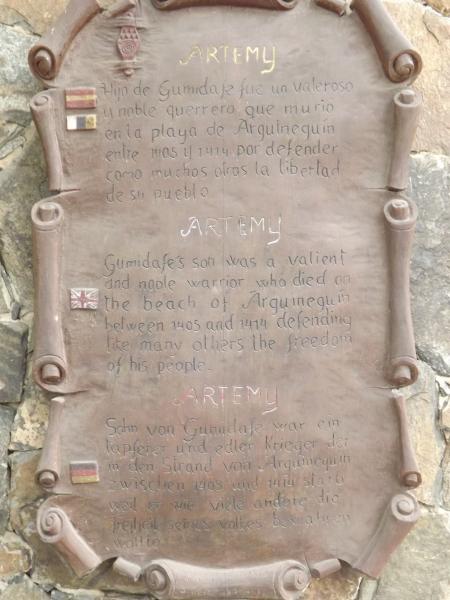 ARTEMY
Hijo de Gumidafe fue un valeroso
y noble guerrero que murio
en la playa de Arguineguín
entre 1405 y 1414 por defender
como muchos otros la libertad
de su pueblo
ARTEMY
Gumidafe's son was a valient
and noble warrior who died on
the beach of Arguineguin
between 1405 and 1414 defending
like many others the freedom
of his people.
ARTEMY
Sohn von Gumidafe war ein
tapferer und edler Krieger der
in den Strand von Arguineguin
zwischen 1405 und 1414 starb
weil er wie viele andere die
freiheit seines volkes bewahren
wollte